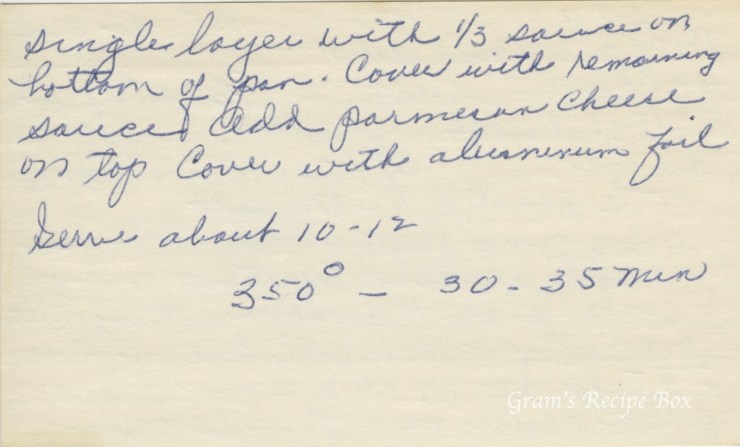 single layer with 1/3 sauce on
bottom of pan. Cover with remaining
sauce, Add parmesan cheese
on top Cover with aluminum foil
Serve about 10-12
350° - 30-35 min
Gram's Recipe Box